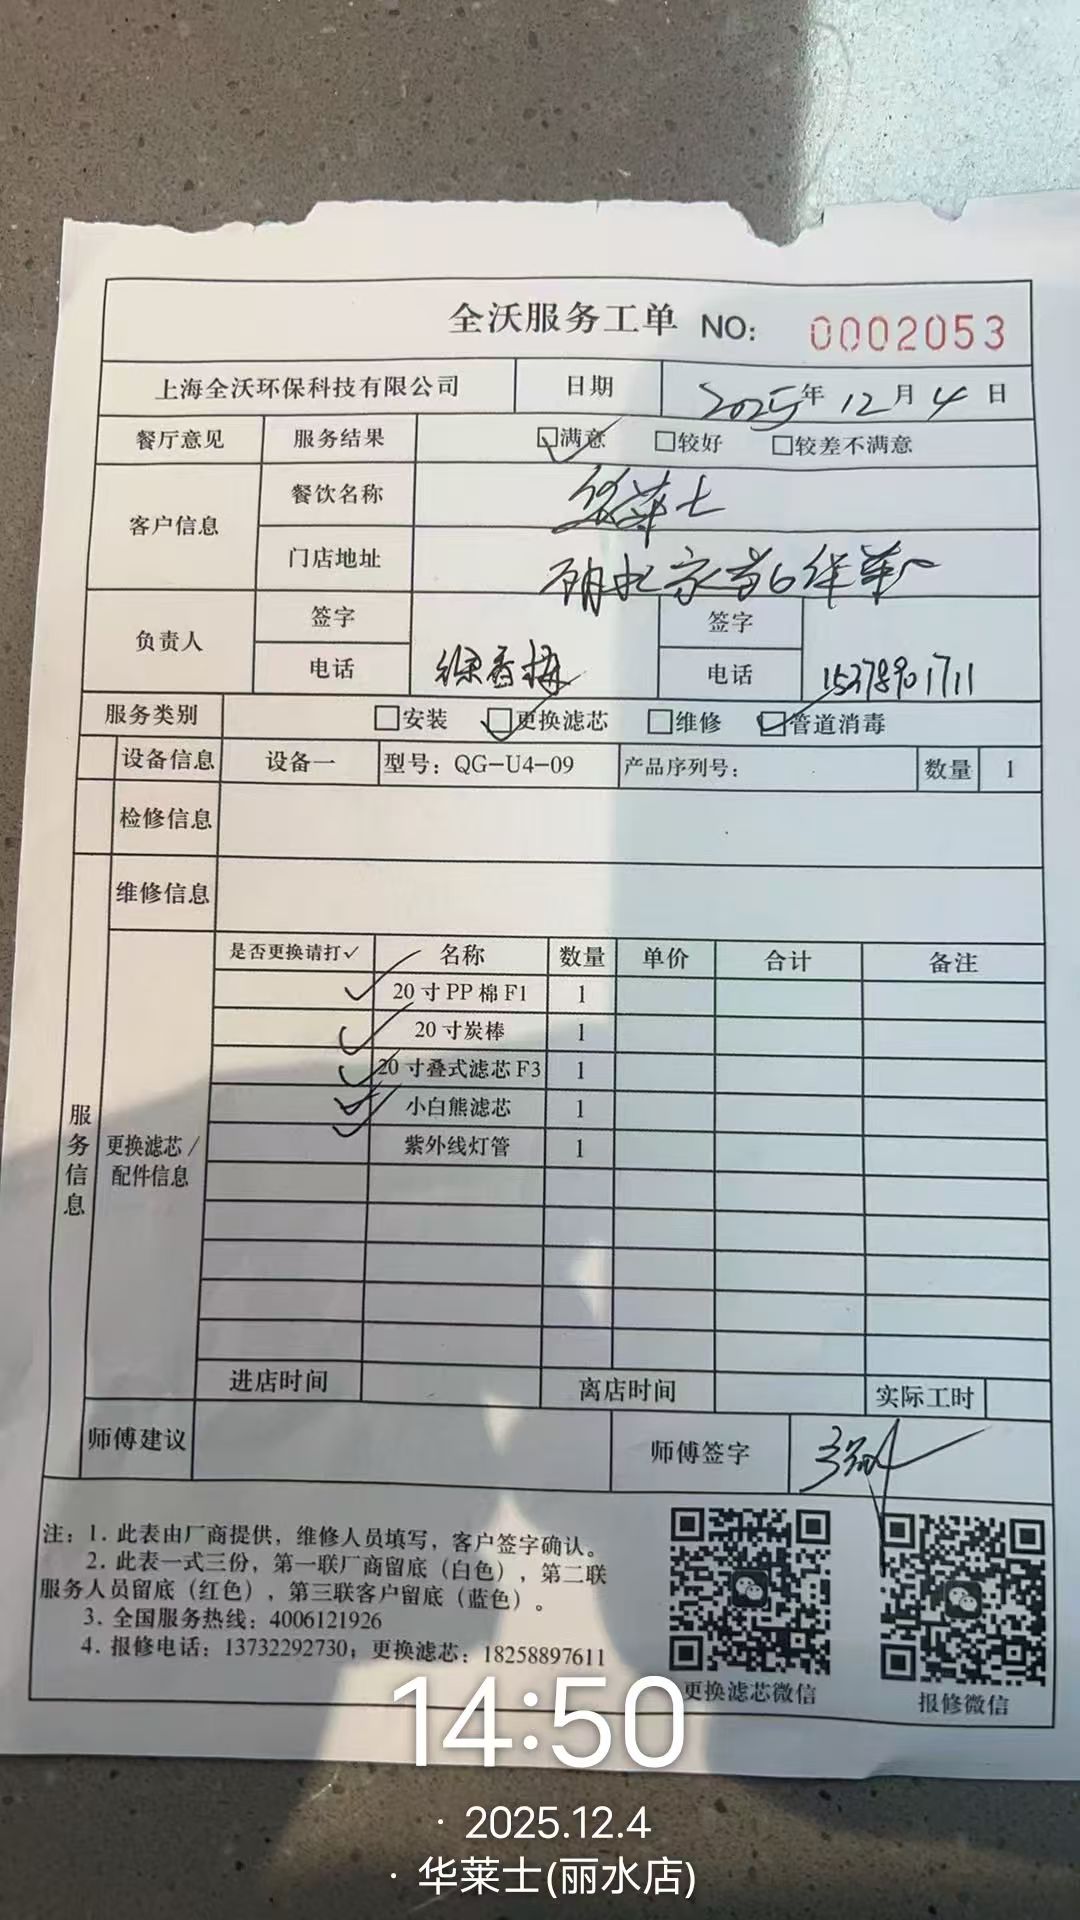 全沃服务工单 NO: 0002053
上海全沃环保科技有限公司 日期 2025年 12月 4日
餐厅意见 服务结果 满意 较好 较差不满意
客户信息 餐饮名称 华莱士
门店地址
负责人 签字 签字
电话 徐香梅 电话 15378901711
服务类别 安装 更换滤芯 维修 管道消毒
设备信息 设备一 型号：QG-U4-09 产品序列号： 数量 1
检修信息
维修信息
是否更换请打✓ 名称 数量 单价 合计 备注
✓ 20寸PP棉F1 1
✓ 20寸炭棒 1
✓ 20寸叠式滤芯F3 1
✓ 小白熊滤芯 1
✓ 紫外线灯管 1
服务信息
更换滤芯/
配件信息
进店时间 离店时间 实际工时
师傅建议 师傅签字
注：1. 此表由厂商提供，维修人员填写，客户签字确认。
2. 此表一式三份，第一联厂商留底（白色），第二联
服务人员留底（红色），第三联客户留底（蓝色）。
3. 全国服务热线：4006121926
4. 报修电话：13732292730；更换滤芯：18258897611
更换滤芯微信 报修微信
14:50
· 2025.12.4
· 华莱士(丽水店)